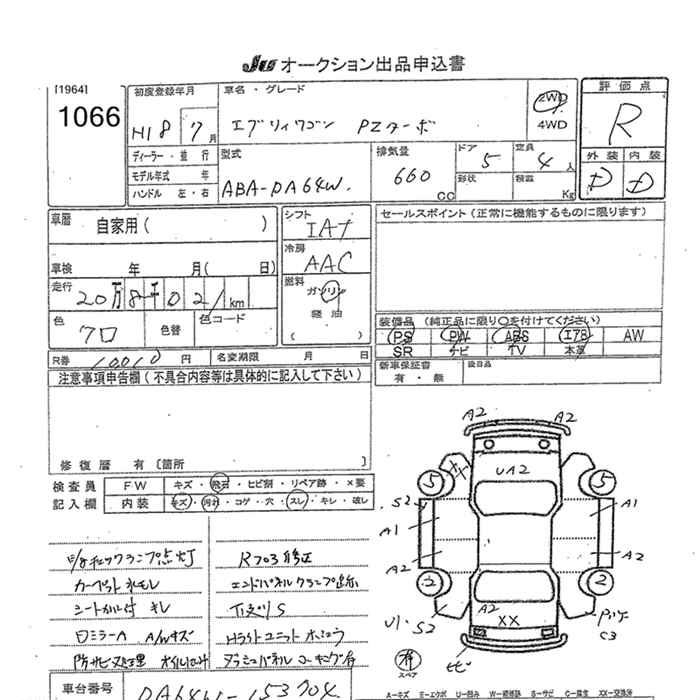 JU オークション出品申込書
[1964]
1066
初度登録年月
H18 7月
車名・グレード
エブリィワゴン PZターボ
2WD
4WD
評価点
R
外装 内装
D D
ディーラー・並行
モデル年式 年
ハンドル 左・右
型式
ABA-DA64W
排気量
660 CC
ドア
5
形状
定員
4人
積載
Kg
車歴
自家用( )
車検 年 月( 日)
走行
20万8千021km
色
クロ
色替
色コード
シフト
IAT
冷房
AAC
燃料
ガソリン
軽油
( )
セールスポイント(正常に機能するものに限ります)
装備品(純正品に限り○を付けてください)
PS PW ABS エアB AW
SR ナビ TV 本革
新車保証書
有・無
後日品
R券 10010円
名変期限 月 日
注意事項申告欄(不具合内容等は具体的に記入して下さい)
修復歴 有〔箇所 〕
検査員
記入欄
FW キズ・飛石・ヒビ割・リペア跡・×要
内装 キズ・汚れ・コゲ・穴・スレ・キレ・破レ
E/gチェックランプ点灯
カーペット
シート 付 キレ
ロミラーA A/Wキズ
防サビ処理 オイル
R703修正
エンドパネル
下廻りS
Hライトユニット
ダッシュパネルコーキング有
A2 A2
UA2
5 5
S2
A1 A1
A2 A2
2 2
A2
XX
U1・S2
C3
ヒビ
有
スペア
車台番号
DA64W-153704
A-キズ E-エクボ U-凹み W-補修跡 S-サビ C-腐食 XX-交換済